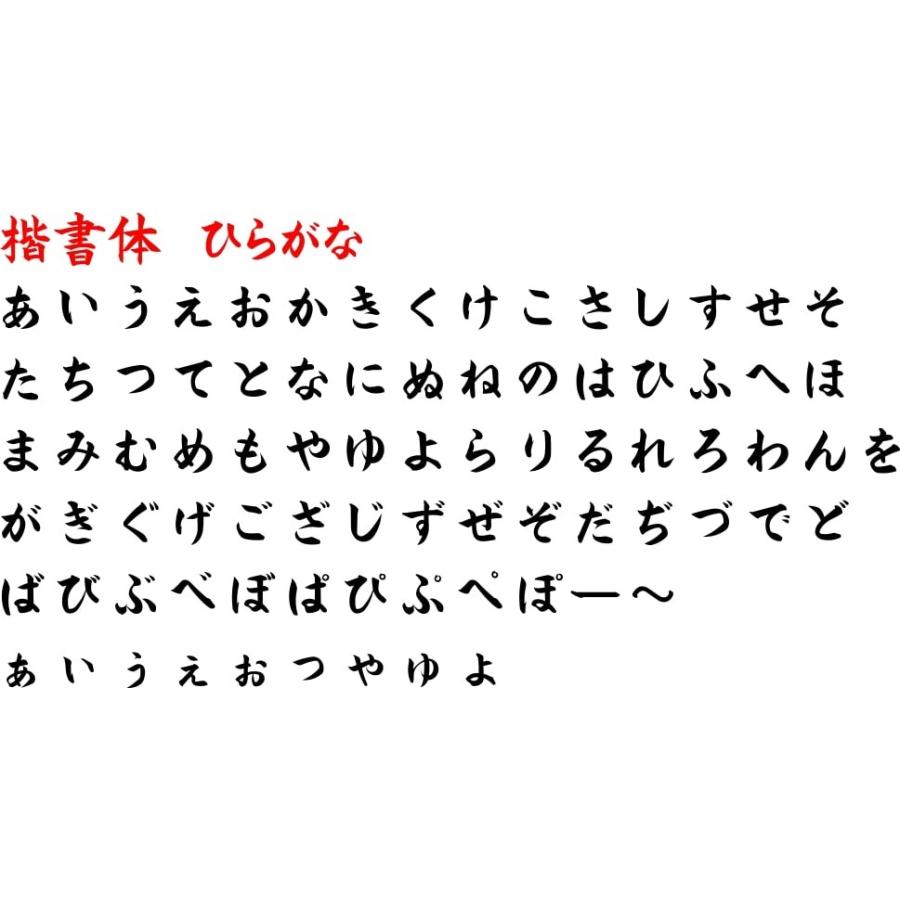 楷書体 ひらがな
あいうえおかきくけこさしすせそ
たちつてとなにぬねのはひふへほ
まみむめもやゆよらりるれろわんを
がぎぐげござじずぜぞだぢづでど
ばびぶべぼぱぴぷぺぽー～
ぁぃぅぇぉっゃゅょ